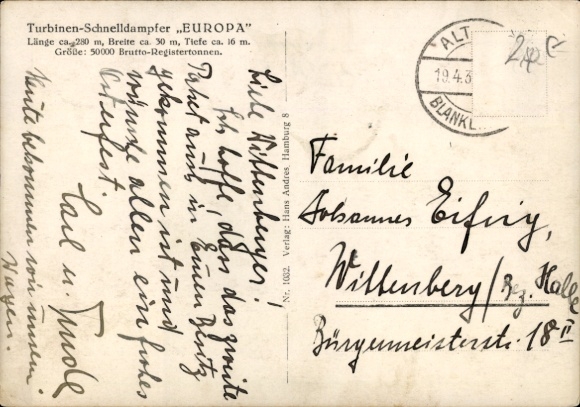 Turbinen-Schnelldampfer „EUROPA"
Länge ca. 280 m, Breite ca. 30 m, Tiefe ca. 16 m.
Größe: 50000 Brutto-Registertonnen.
ALT
19.4.3
BLANKE
Liebe Wittenberger!
Ich hoffe, dass das zweite
Paket auch in Euren Besitz
gekommen ist und
wünsche allen ein frohes
Osterfest.
Carl u.
Heute bekommen wir unsern
Wagen.
Nr. 1032. Verlag: Hans Andres, Hamburg 8
Familie
Johannes
Wittenberg / Bez. Halle
Bürgermeisterstr. 18 II